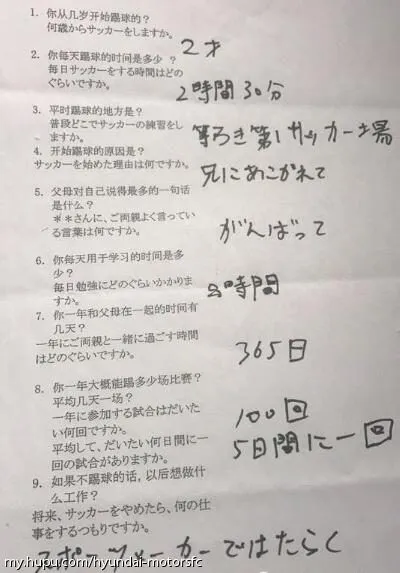 1. 你从几岁开始踢球的?
何歳からサッカーをしますか。
2才
2. 你每天踢球的时间是多少 ?
毎日サッカーをする時間はどの
ぐらいですか。
2時間30分
3. 平时踢球的地方是?
普段どこでサッカーの練習をし
ますか。
等々き第1サッカー場
4. 开始踢球的原因是?
サッカーを始めた理由は何ですか。
兄にあこがれて
5. 父母对自己说得最多的一句话
是什么?
**さんに、ご両親よく言ってい
る言葉は何ですか。
がんばって
6. 你每天用于学习的时间是多
少?
毎日勉強にどのぐらいかかりま
すか。
時間
7. 你一年和父母在一起的时间有
几天?
一年にご両親と一緒に過ごす時間
はどのぐらいですか。
365日
8. 你一年大概能踢多少场比赛?
平均几天一场?
一年に参加する試合はだいた
い何回ですか。
100回
平均して、だいたい何日間に一
回の試合がありますか。
5日間に一回
9. 如果不踢球的话,以后想做什
么工作?
将来、サッカーをやめたら、何の仕
事をするつもりですか。
スポーツメーカーではたらく
my.hupu.com/hyundai-motorsfc